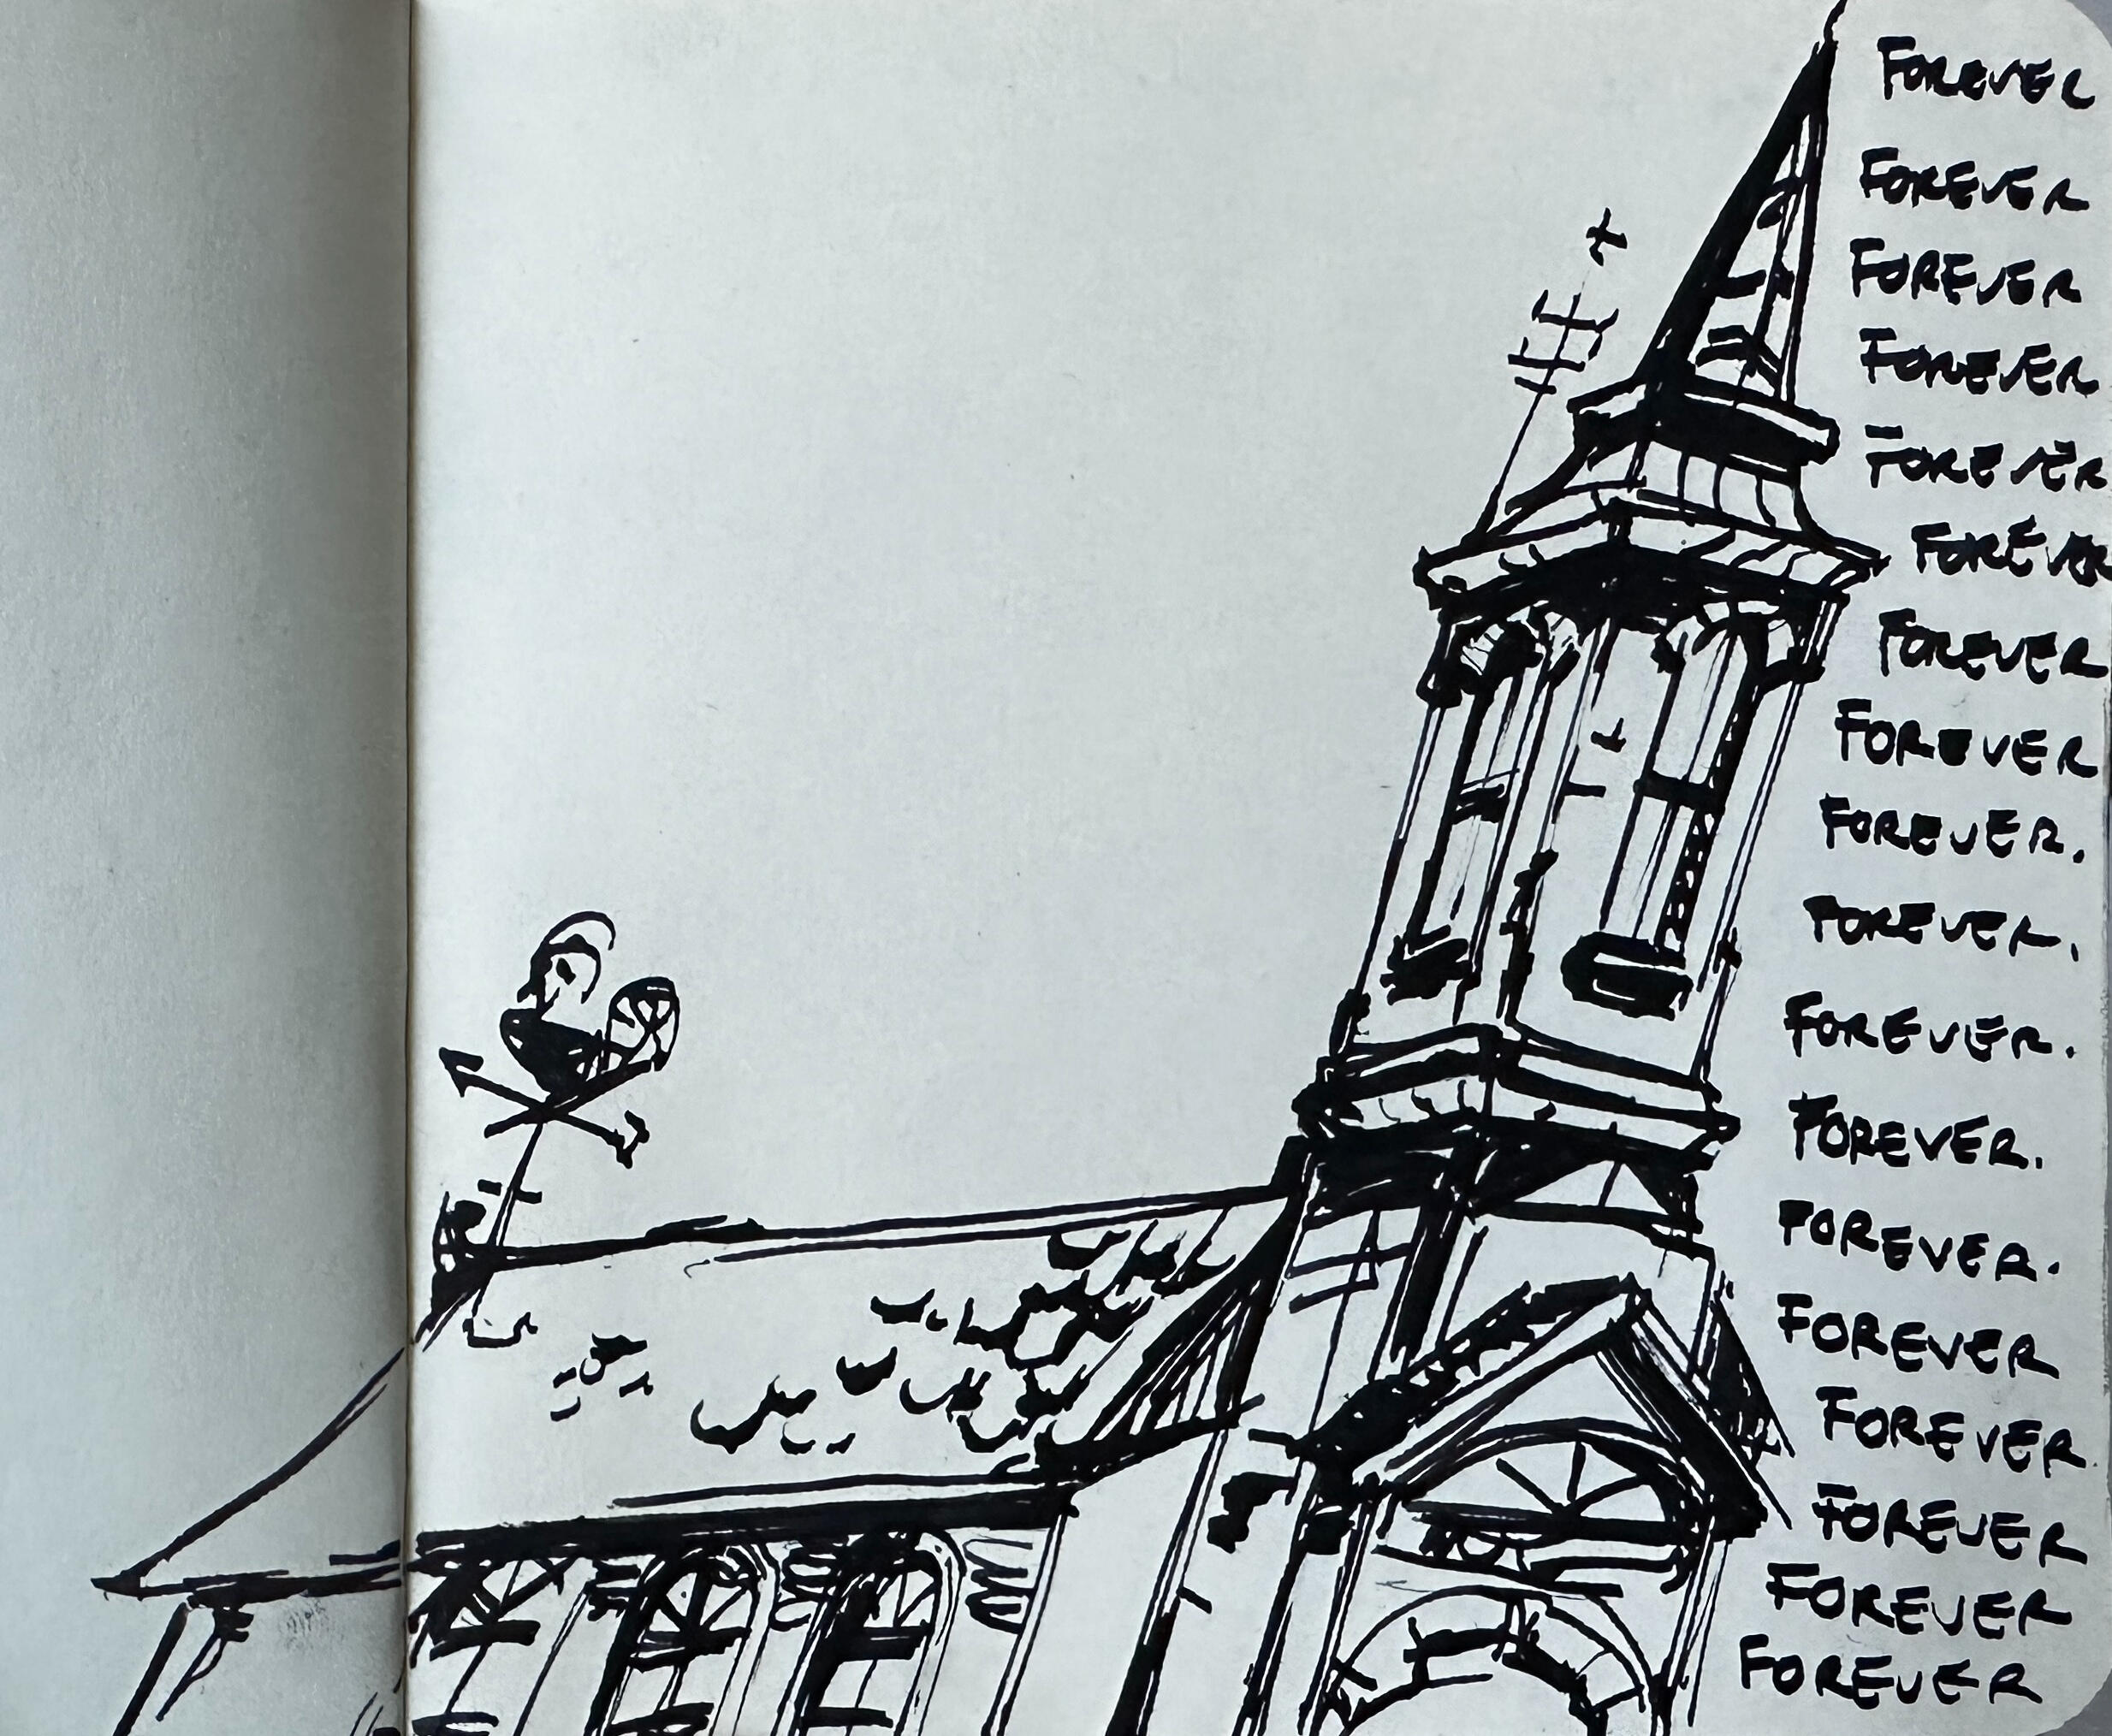 FOREVER
FOREVER
FOREVER
FOREVER
FOREVER
FOREVER
FOREVER
FOREVER
FOREVER.
FOREVER.
FOREVER.
FOREVER.
FOREVER.
FOREVER
FOREVER
FOREVER
FOREVER
FOREVER